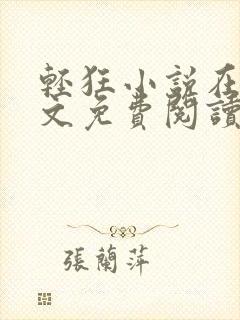 輕狂小說在
文免費閱讀
張蘭萍